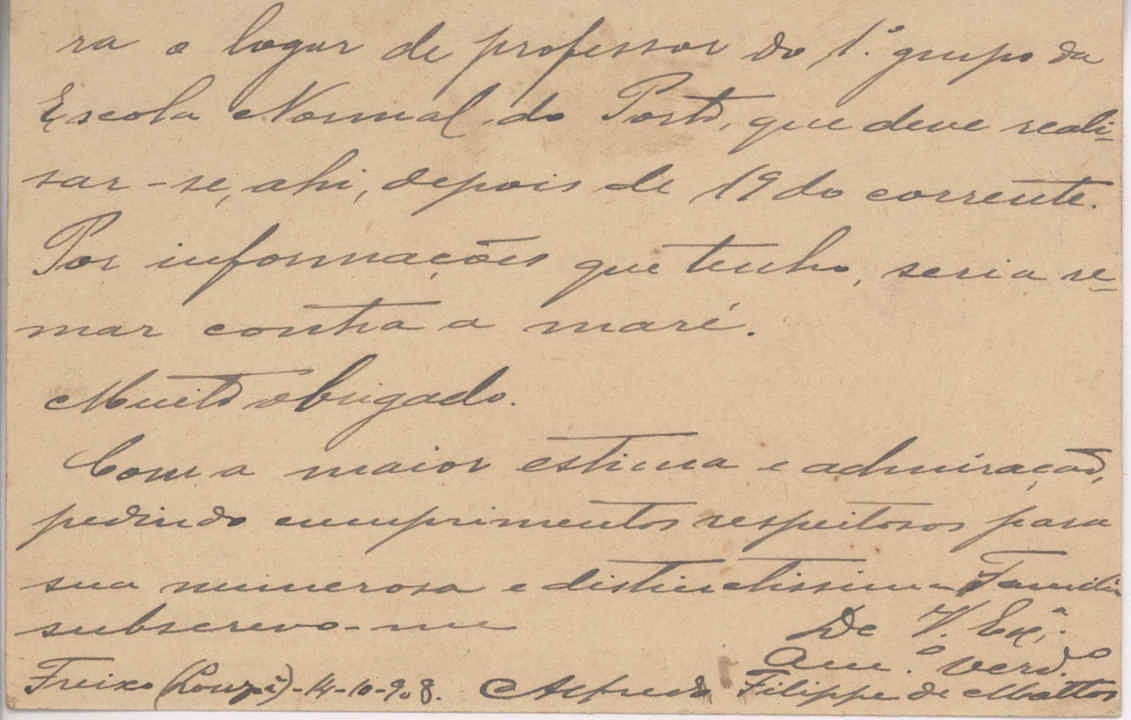 ra o logar de professor do 1.º grupo da
Escola Normal do Porto, que deve reali-
sar-se, ahi, depois de 19 do corrente.
Por informações que tenho, seria re-
mar contra a maré.
Muito obrigado.
Com a maior estima e admiração,
pedindo cumprimentos respeitosos para
sua numerosa e distinctissima Familia
subscrevo-me
De V. Ex.ª
Am.º Verd.º
Freixo (Louzã)-14-10-908. Alfredo Filippe de Mattos